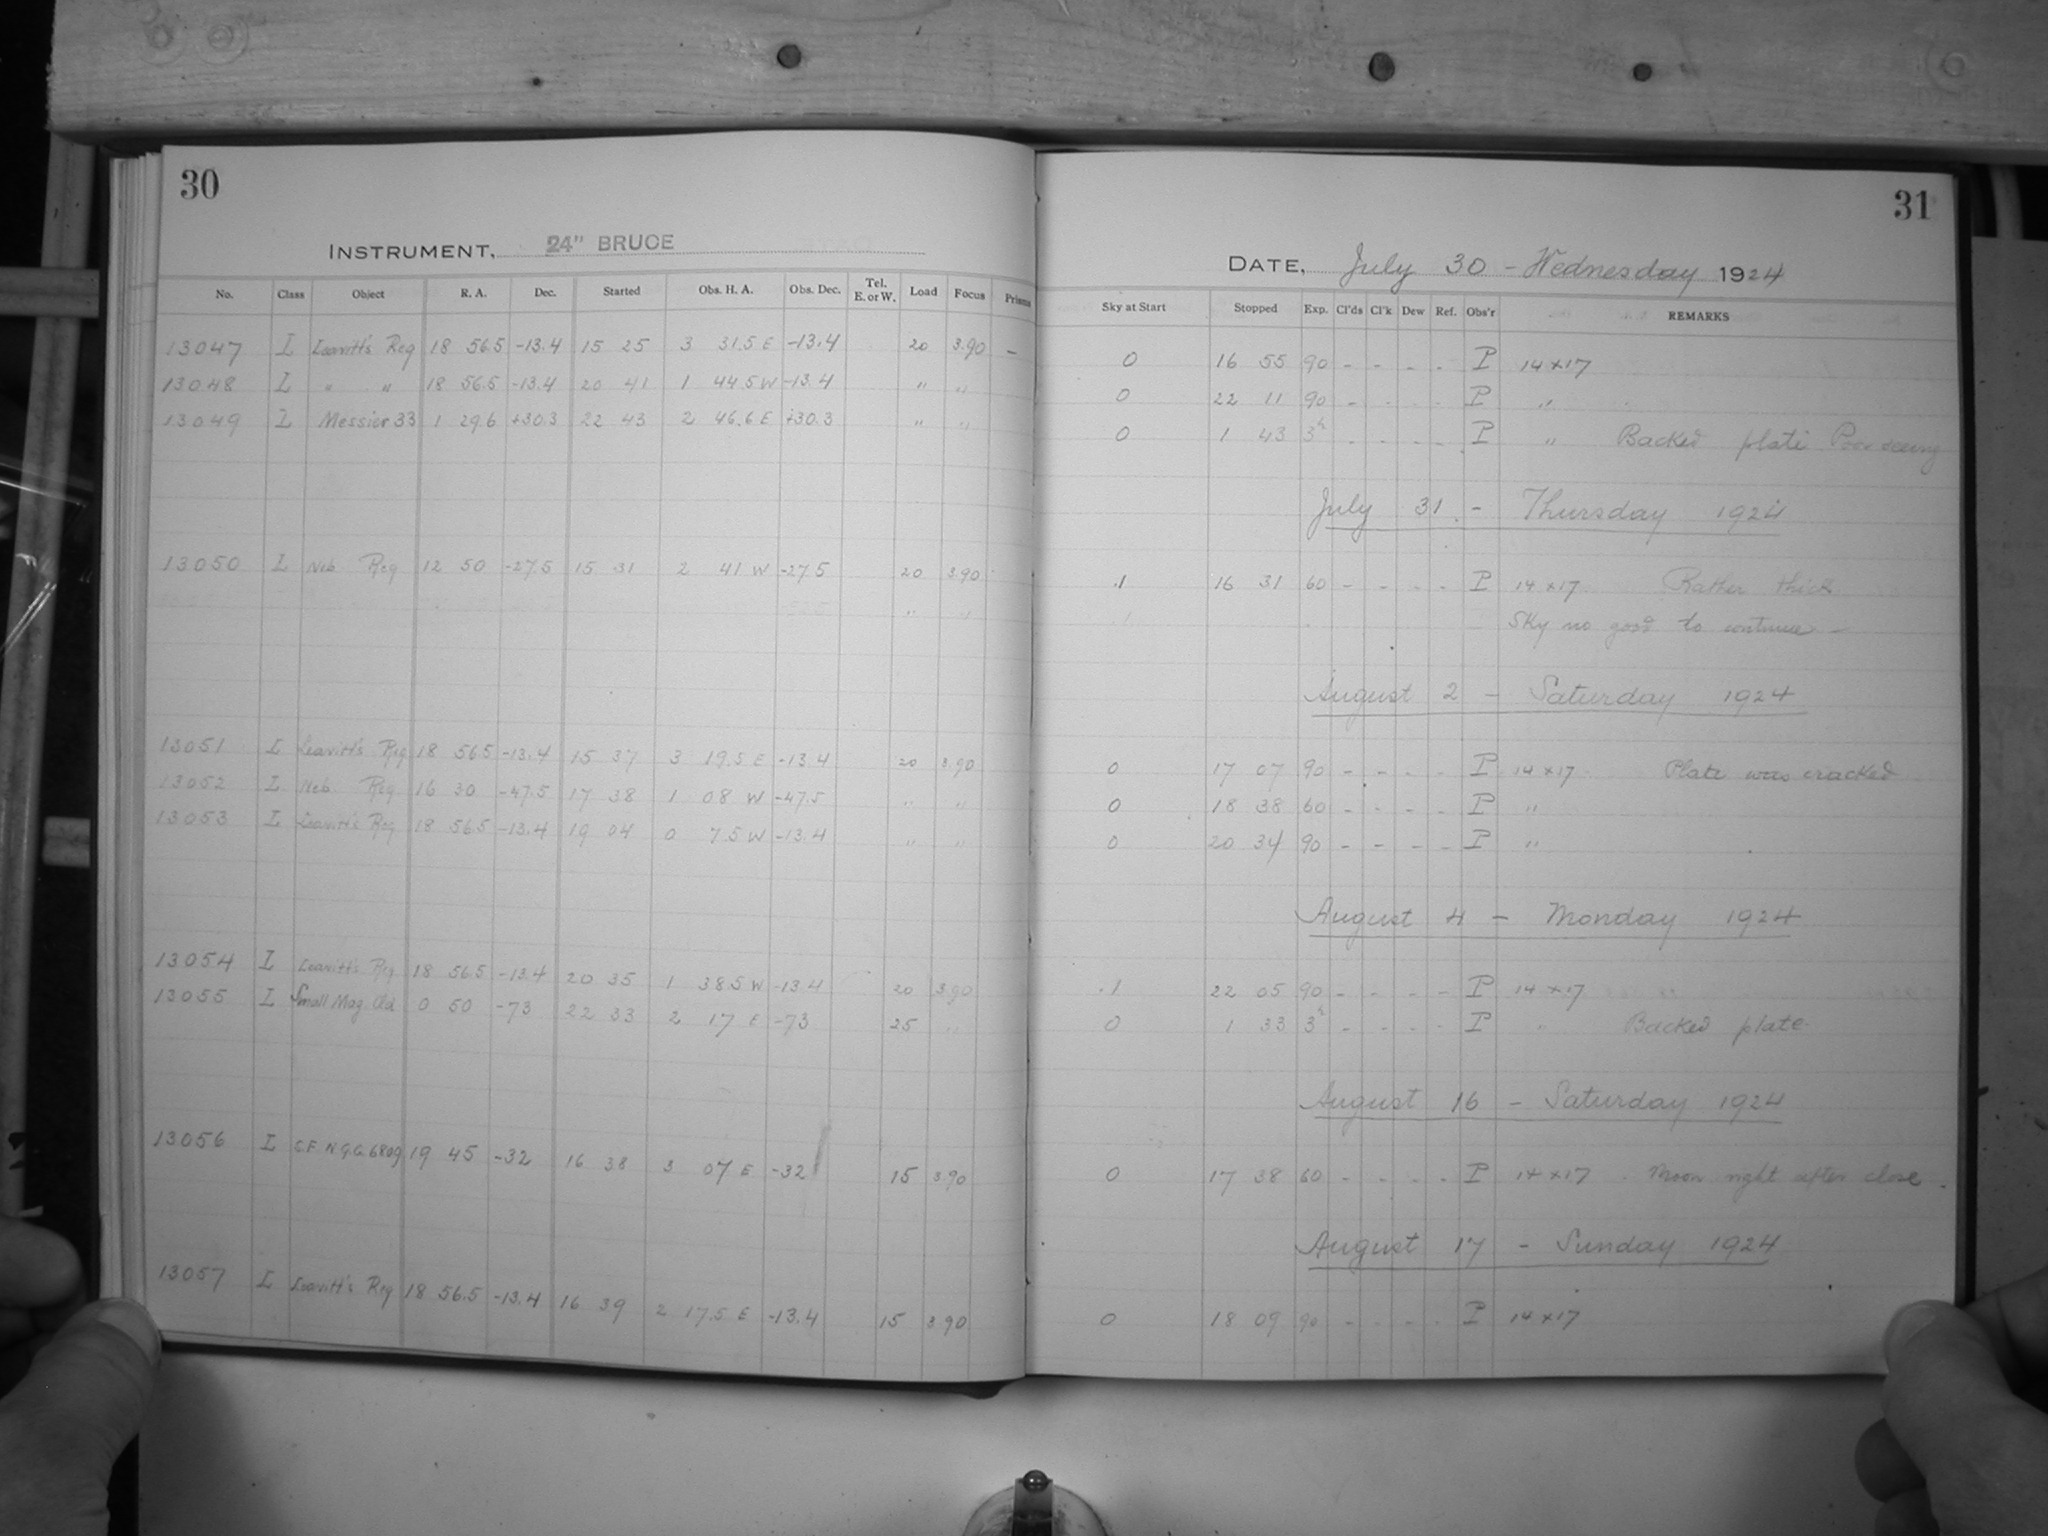 30
INSTRUMENT, 24" BRUCE
No. Class Object R. A. Dec. Started Obs. H. A. Obs. Dec. Tel. E. or W. Load Focus Prisms
13047 I Leavitt's Reg 18 56.5 -13.4 15 25 3 31.5 E -13.4 20 3.90 -
13048 I " " 18 56.5 -13.4 20 41 1 44.5 W -13.4 " "
13049 I Messier 33 1 29.6 +30.3 22 43 2 46.6 E +30.3 " "
13050 I Neb. Reg 12 50 -27.5 15 31 2 41 W -27.5 20 3.90
" "
13051 I Leavitt's Reg 18 56.5 -13.4 15 37 3 19.5 E -13.4 20 3.90
13052 I Neb. Reg 16 30 -47.5 17 38 1 08 W -47.5 " "
13053 I Leavitt's Reg 18 56.5 -13.4 19 04 0 7.5 W -13.4 " "
13054 I Leavitt's Reg 18 56.5 -13.4 20 35 1 38.5 W -13.4 20 3.90
13055 I Small Mag. Cld 0 50 -73 22 33 2 17 E -73 25 "
13056 I C.F. N.G.C. 6809 19 45 -32 16 38 3 07 E -32 15 3.90
13057 I Leavitt's Reg 18 56.5 -13.4 16 39 2 17.5 E -13.4 15 3.90
31
DATE, July 30 - Wednesday 1924
Sky at Start Stopped Exp. Cl'ds Cl'k Dew Ref. Obs'r REMARKS
0 16 55 90 - - - - P 14x17
0 22 11 90 - - - - P "
0 1 43 3h - - - - P " Backed plate Poor seeing
July 31 - Thursday 1924
.1 16 31 60 - - - - P 14x17 Rather thick
Sky no good to continue -
August 2 - Saturday 1924
0 17 07 90 - - - - P 14x17 Plate was cracked
0 18 38 60 - - - - P "
0 20 34 90 - - - - P "
August 4 - Monday 1924
.1 22 05 90 - - - - P 14x17
0 1 33 3h - - - - P " Backed plate
August 16 - Saturday 1924
0 17 38 60 - - - - P 14x17 . Moon right after close .
August 17 - Sunday 1924
0 18 09 90 - - - - P 14x17